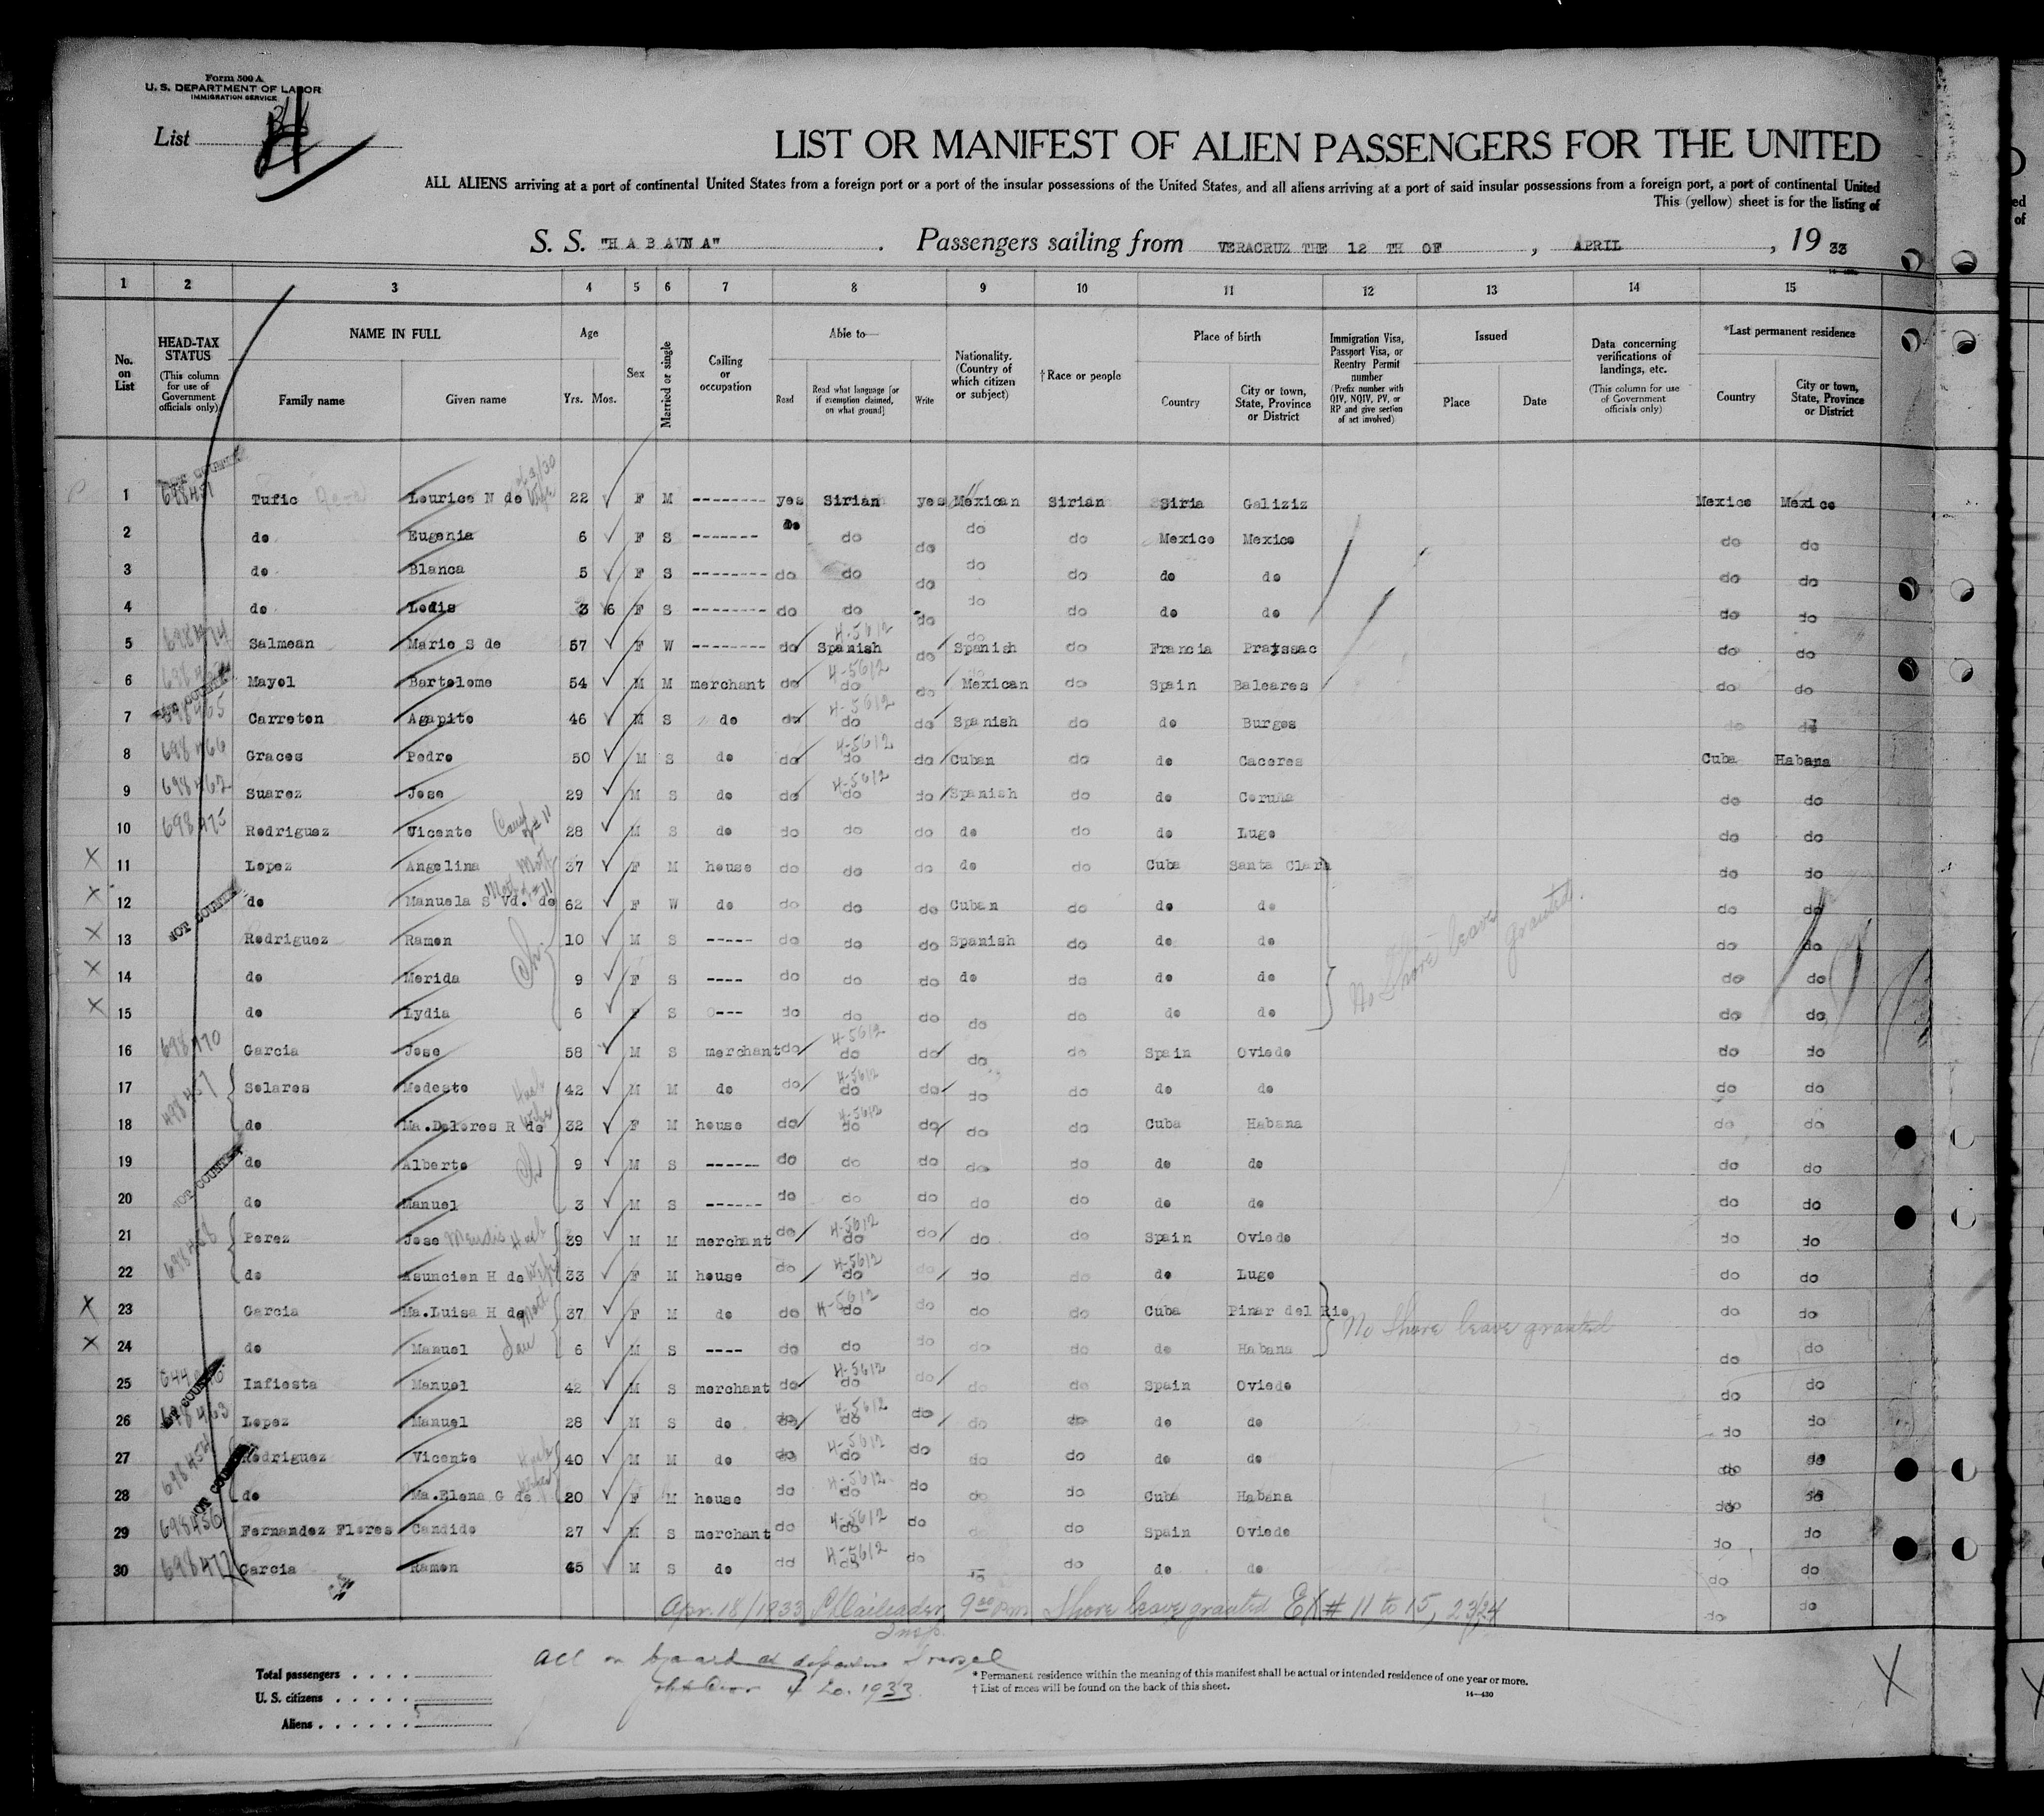 Form 500 A
U. S. DEPARTMENT OF LABOR
IMMIGRATION SERVICE
List
LIST OR MANIFEST OF ALIEN PASSENGERS FOR THE UNITED
ALL ALIENS arriving at a port of continental United States from a foreign port or a port of the insular possessions of the United States, and all aliens arriving at a port of said insular possessions from a foreign port, a port of continental United
This (yellow) sheet is for the listing of
S. S. "H A B AVN A" . Passengers sailing from VERACRUZ THE 12 TH OF , APRIL , 19 33
1 2 3 4 5 6 7 8 9 10 11 12 13 14 15
No. on List HEAD-TAX STATUS (This column for use of Government officials only) NAME IN FULL Family name Given name Age Yrs. Mos. Sex Married or single Calling or occupation Able to— Read Read what language [or if exemption claimed, on what ground] Write Nationality. (Country of which citizen or subject) † Race or people Place of birth Country City or town, State, Province or District Immigration Visa, Passport Visa, or Reentry Permit number (Prefix number with QIV, NQIV, PV, or RP and give section of act involved) Issued Place Date Data concerning verifications of landings, etc. (This column for use of Government officials only) *Last permanent residence Country City or town, State, Province or District
1 Tufic Leurice N de Wife 22 F M -------- yes Sirian yes Mexican Sirian Siria Galiziz Mexico Mexico
2 de Eugenia 6 F S ------- de do do do do Mexico Mexico do do
3 de Blanca 5 F S -------- do do do do do de de do do
4 de Ledis 3 6 F S -------- do do do do do de de do do
5 698474 Salmean Marie S de 57 F W -------- do 4-5612 Spanish do Spanish do Francia Prayssac do do
6 Mayol Bartolome 54 M M merchant do 4-5612 do do Mexican do Spain Baleares do do
7 Carreton Agapito 46 M S de do 4-5612 do do Spanish do de Burgos do do
8 698466 Graces Pedro 50 M S de do 4-5612 do do Cuban do de Caceres Cuba Habana
9 698462 Suarez Jose 29 M S de do 4-5612 do do Spanish do de Coruña do do
10 698475 Rodriguez Vicente 28 M S de do do do de do de Lugo do do
X 11 Lopez Angelina 37 F M house do do do de do Cuba Santa Clara do do
X 12 NOT COUNTED de Manuela S Vd. de 62 F W de do do do Cuban do de de do do
X 13 Rodriguez Ramon 10 M S ----- do do do Spanish do de de do do
X 14 de Merida Ch. 9 F S ---- do do do de do de de do do
X 15 de Lydia 6 F S --- do do do do do de de do do
No shore leave granted.
16 698470 Garcia Jose 58 M S merchant do 4-5612 do do do do Spain Oviedo do do
17 Solares Modesto 42 M M de do 4-5612 do do do do de de do do
18 de Ma.Dolores R de Wife 32 F M house do 4-5612 do do do do Cuba Habana do do
19 NOT COUNTED de Alberto Ch 9 M S ------ do do do do do de de do do
20 de Manuel 3 M S ------ do do do do do de de do do
21 698468 Perez Jose 39 M M merchant do 4-5612 do do do do Spain Oviedo do do
22 de Asuncion H de Wife 33 F M house do 4-5612 do do do do de Lugo do do
X 23 Garcia Ma.Luisa H de 37 F M de do 4-5612 do do do do Cuba Pinar del Rio do do
X 24 de Manuel 6 M S ---- do do do do do de Habana do do
No shore leave granted
25 Infiesta Manuel 42 M S merchant do 4-5612 do do do do Spain Oviedo do do
26 Lopez Manuel 28 M S de do 4-5612 do do do do de de do do
27 Rodriguez Vicente 40 M M de do 4-5612 do do do do de de do do
28 NOT COUNTED de Ma.Elena G de 20 F M house do 4-5612 do do do do Cuba Habana do do
29 698456 Fernandez Flores Candido 27 M S merchant do 4-5612 do do do Spain Oviedo do do
30 698472 Garcia Ramon 45 M S de do 4-5612 do do do de de do do
do do
Apr. 18/1933 9 30 pm Shore leave granted EX # 11 to 15, 23/24
Insp.
All on board at departure of vessel
4 20. 1933
Total passengers . . . .
U. S. citizens . . . . .
Aliens . . . . . .
* Permanent residence within the meaning of this manifest shall be actual or intended residence of one year or more.
† List of races will be found on the back of this sheet.
14—430
X